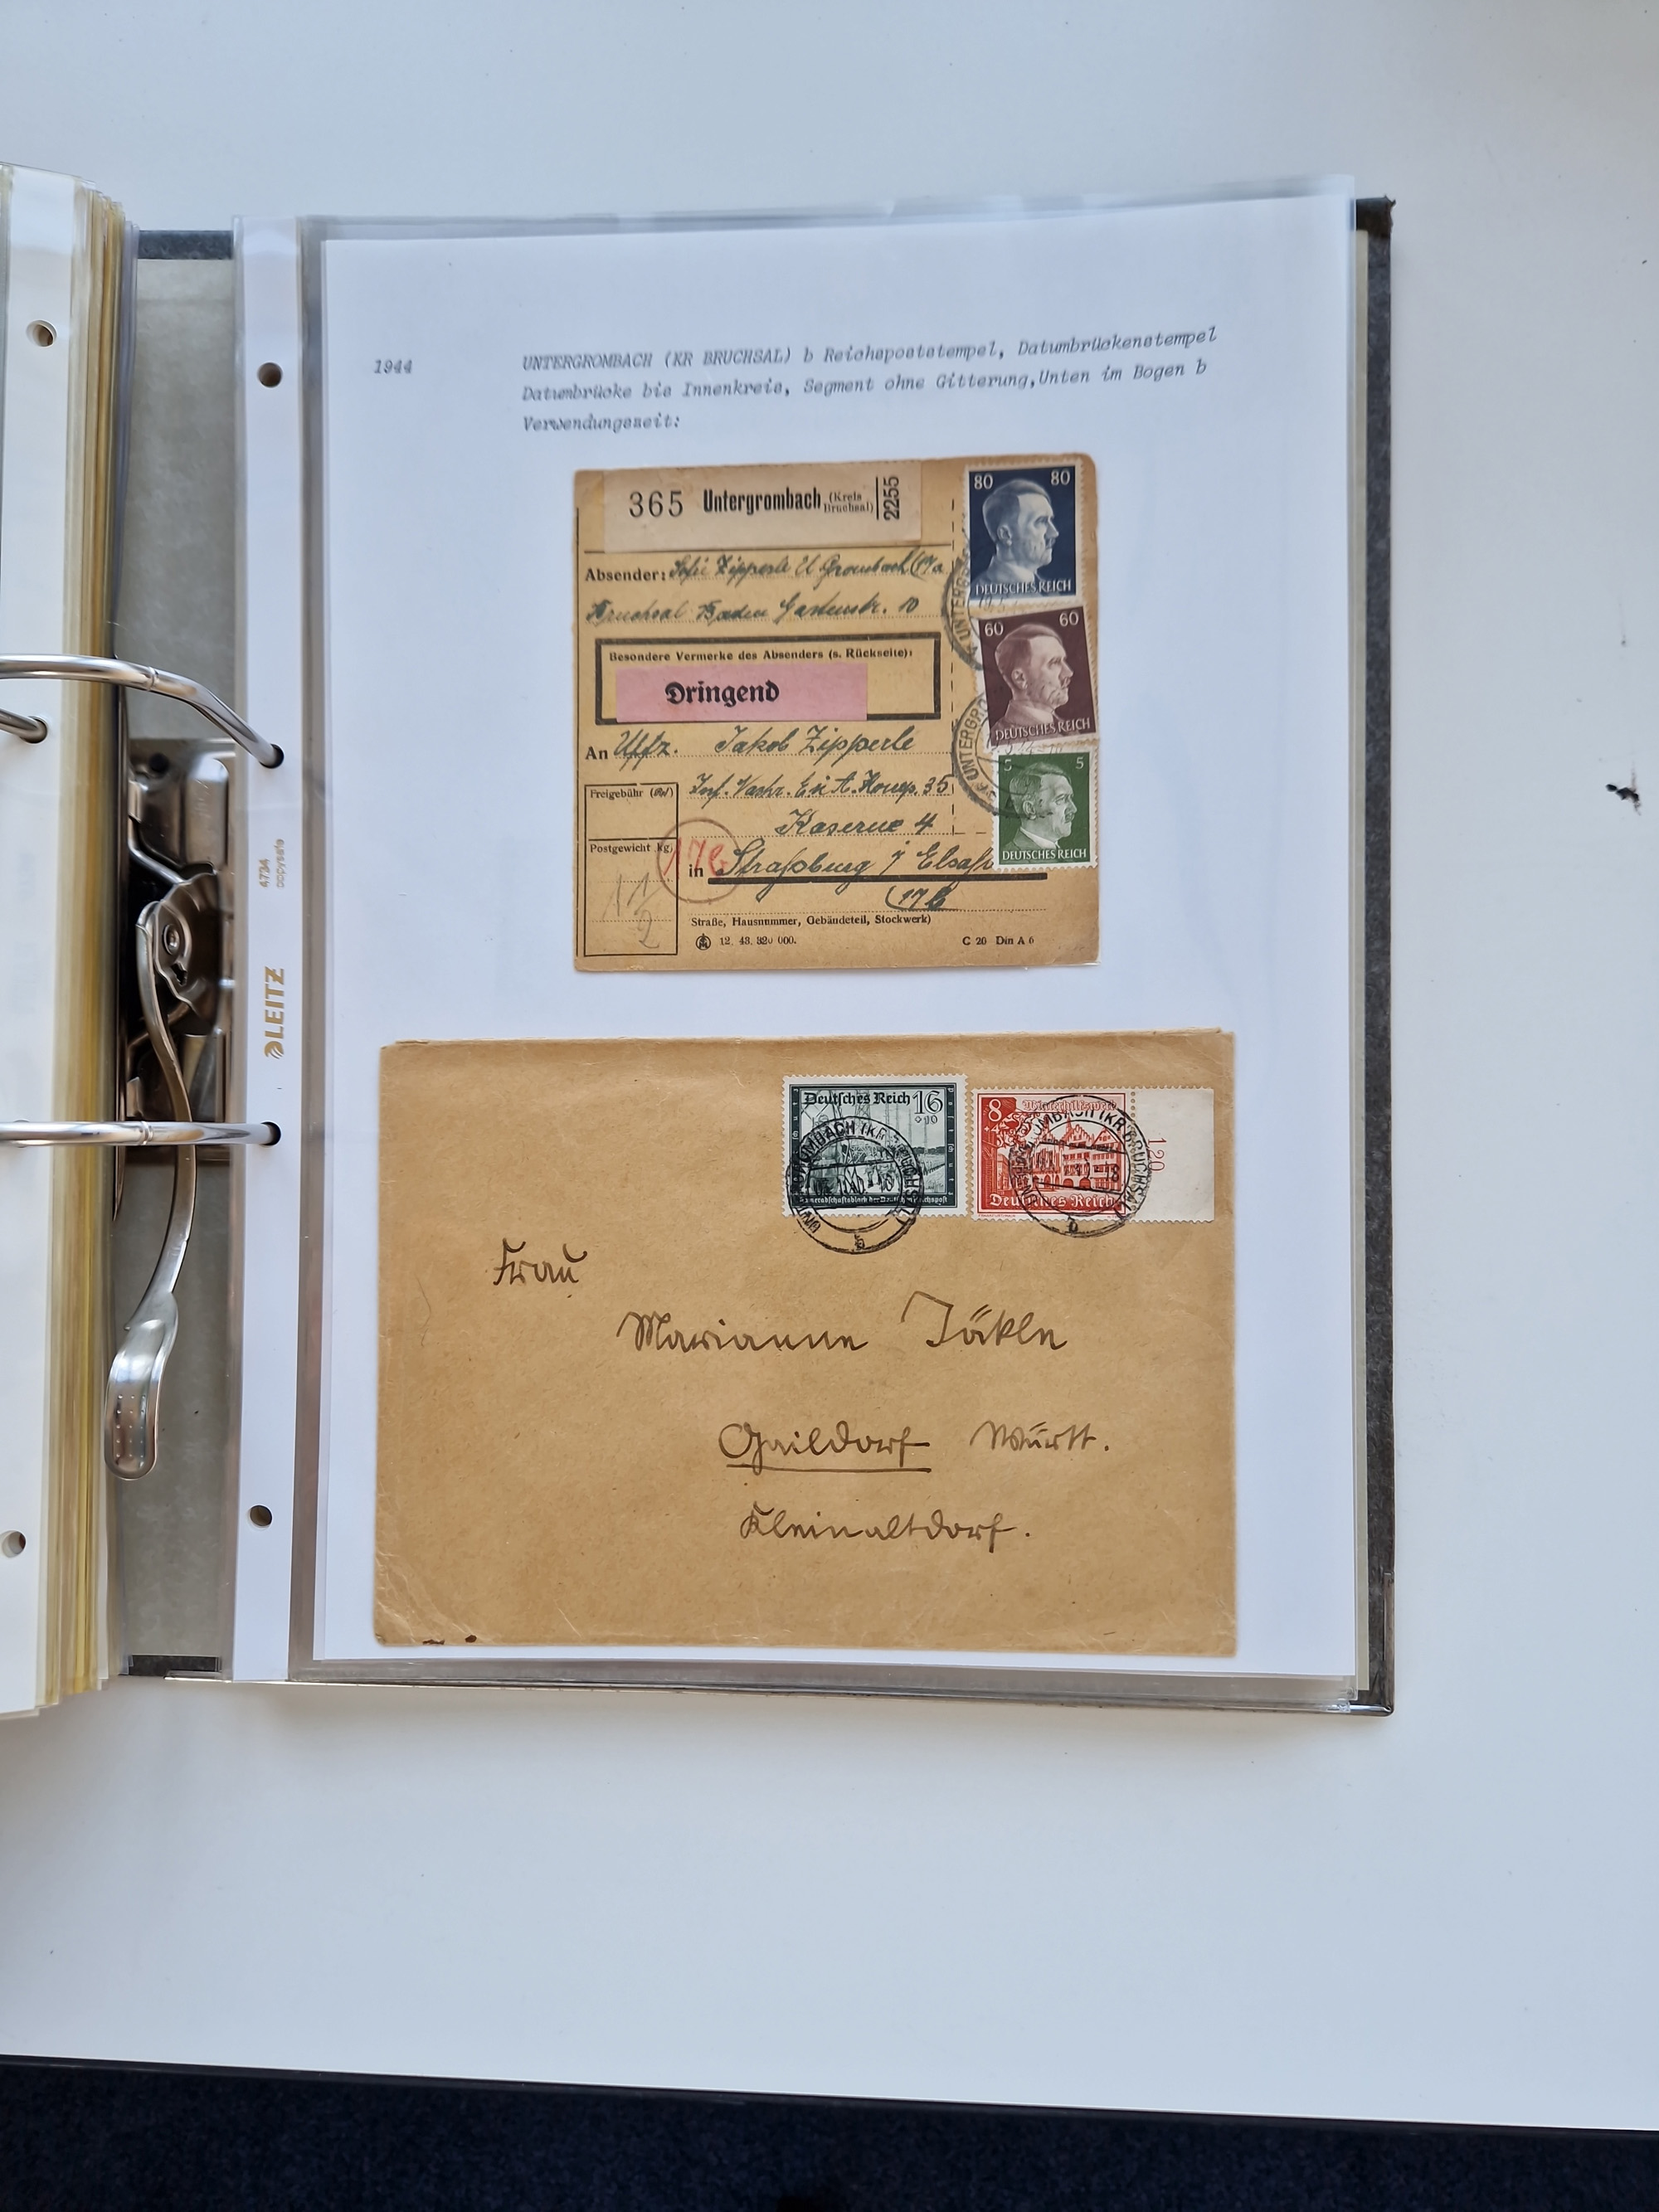 1944
UNTERGROMBACH (KR BRUCHSAL) b Reichspoststempel, Datumbrückenstempel
Datumbrücke bis Innenkreis, Segment ohne Gitterung,Unten im Bogen b
Verwendungszeit:
365 Untergrombach (Kreis Bruchsal) 2255
Absender: Sofie Zipperle U Grombach (17a
Bruchsal Baden Gartenstr. 10
Besondere Vermerke des Absenders (s. Rückseite):
Dringend
An Uffz. Jakob Zipperle
Kaserne 4
Freigebühr
Postgewicht kg
17b
in Straßburg i Elsaß
(17b
11 1/2
Straße, Hausnummer, Gebäudeteil, Stockwerk)
12. 43. 320 000.
C 26 Din A 6
80 80
DEUTSCHES REICH
60 60
DEUTSCHES REICH
5 5
DEUTSCHES REICH
UNTERGRO
Deutsches Reich 16
+10
Kameradschaftsblock der Deutschen Reichspost
8
Winterhilfswerk
Deutsches Reich
120
GROMBACH (KR BRUCHSAL)
b
OMBACH (KR BRUCHSAL)
b
Frau
Marianne Jäkle
Gaildorf Württ.
Kleinaltdorf.
LEITZ
4734
copysafe